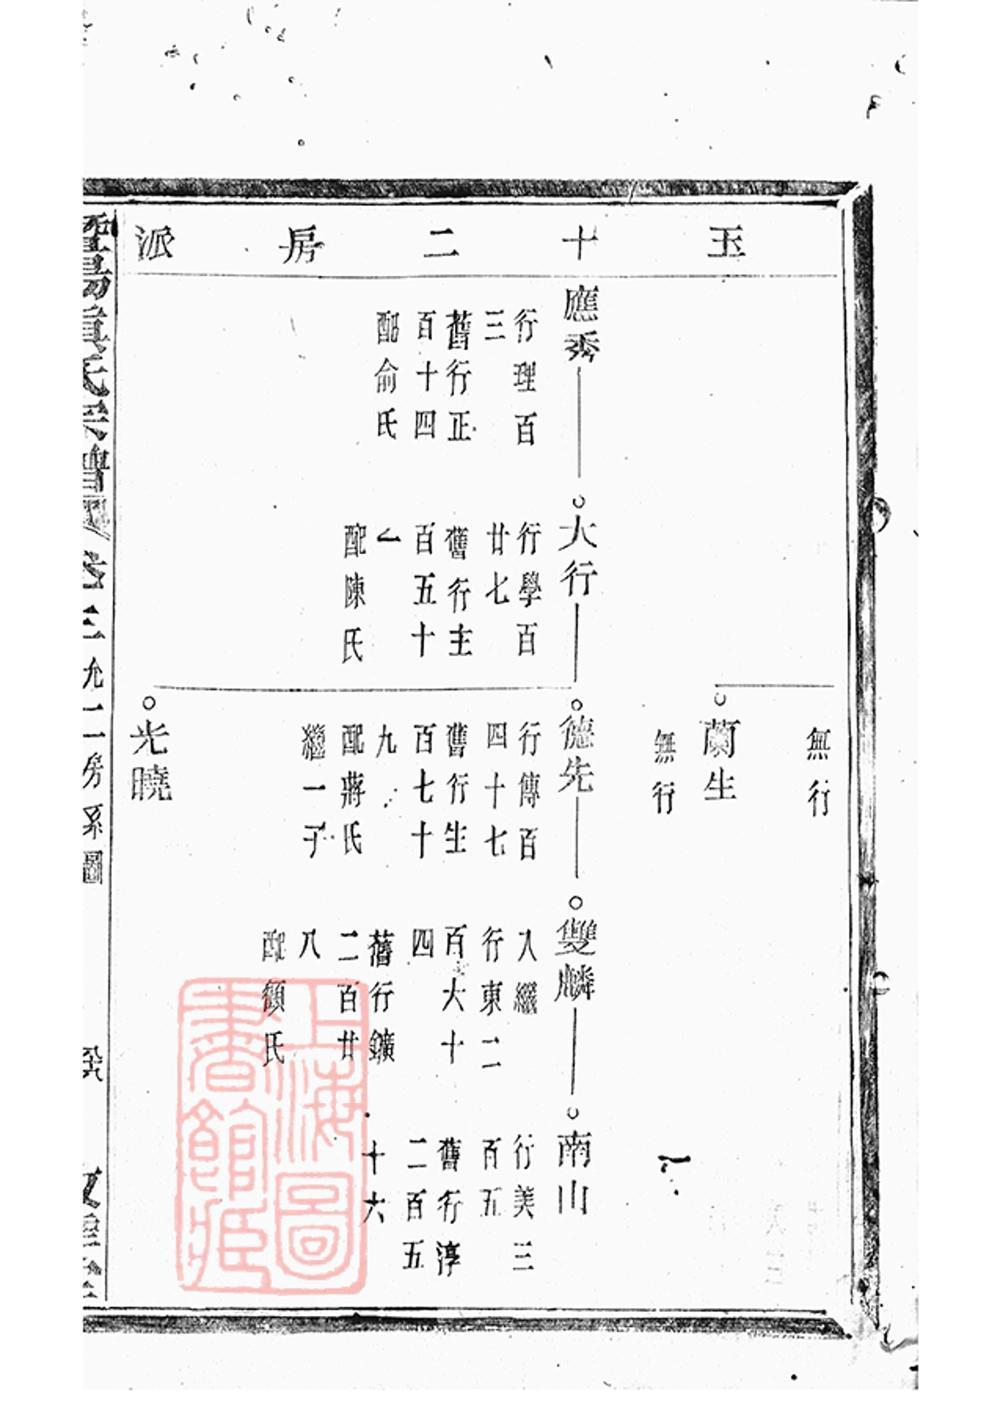 玉十二房派
無行
蘭生
無行
應秀
行理百
三
舊行正
百十四
配俞氏
大行
行學百
廿七
舊行主
百五十
一
配陳氏
德先
行傳百
四十七
舊行生
百七十
九
配蔣氏
繼一子
雙麟
入繼
行東二
百六十
四
舊行鑛
二百廿
八
配顧氏
南山
行美三
百五
舊行淳
二百五
十六
光曉
氏宗譜
卷三允二房系圖
上海圖
書館藏